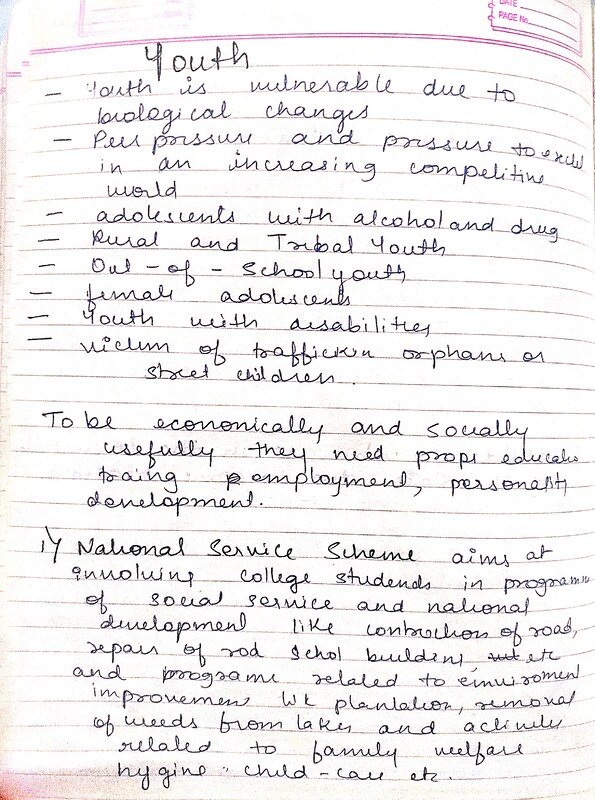 DATE
PAGE No.
Youth
- Youth is vulnerable due to
biological changes
- Peer pressure and pressure to excel
in an increasing competitive
world
- adolescents with alcohol and drug
- Rural and Tribal Youth
- Out-of-School youth
- female adolescents
- Youth with disabilities
- victim of traffickin orphans or
street children.
To be economically and socially
usefully they need props educatio
traing employment, personality
development.
1) National Service Scheme aims at
involving college students in programm
of social service and national
development like contruction of road,
repairs of rod schol building, etc
and programs related to enviroment
improvement like plantation, removal
of weeds from lakes and activities
related to family welfare
hygine child-care etc.